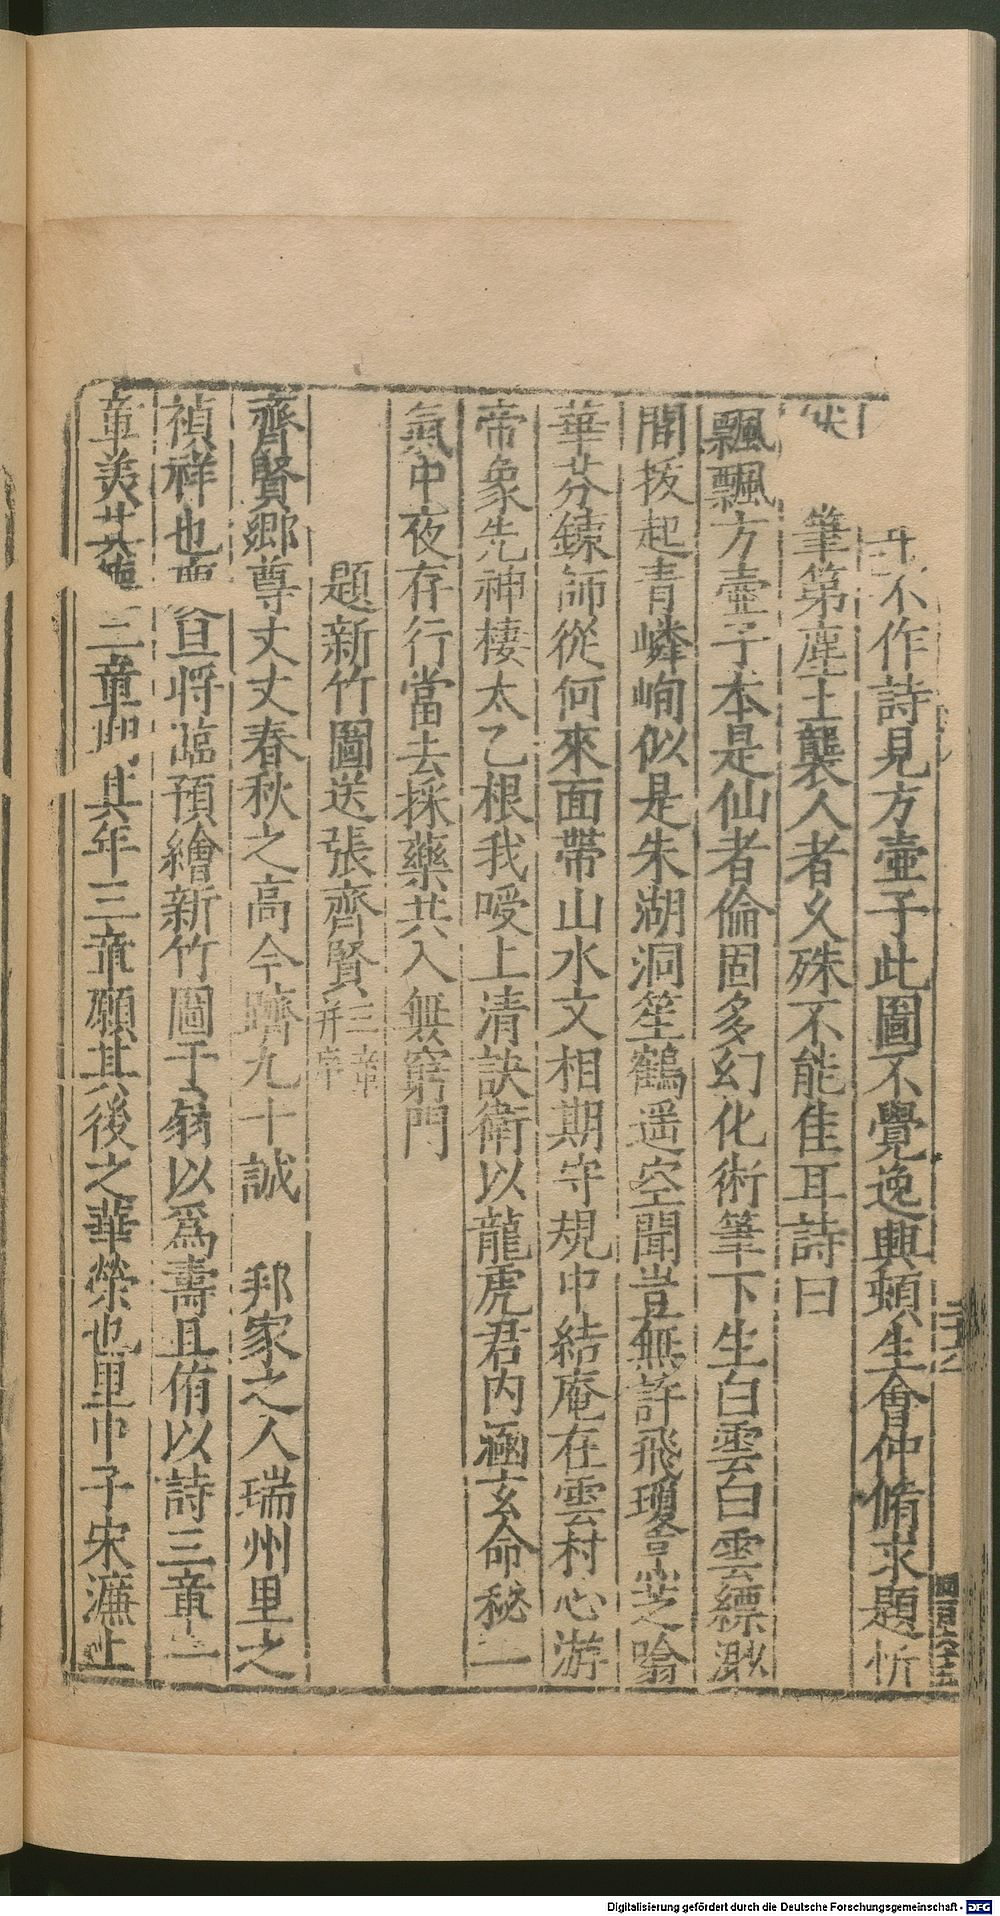 不作詩見方壺子此圖不覺逸興頓生會仲脩求題忻
筆第塵土襲人者久殊不能佳耳詩曰
飄飄方壺子本是仙者倫固多幻化術筆下生白雲白雲縹渺
間拔起青嶙峋似是朱湖洞笙鶴遥空聞豈無許飛瓊亭芝嗡
華芬鍊師從何來面帶山水文相期守規中結庵在雲村心游
帝象先神棲太乙根我受上清訣衛以龍虎君内涵玄命秘一
氣中夜存行當去採藥共入無窮門
題新竹圖送張齊賢三章并序
齊賢鄉尊丈丈春秋之高今躋九十誠 邦家之人瑞州里之
禎祥也 旦將臨預繪新竹圖于 以爲壽且侑以詩三章一
章美其 二章 其年三章願其後之華榮也里中子宋濂上
Digitalisierung gefördert durch die Deutsche Forschungsgemeinschaft - DFG